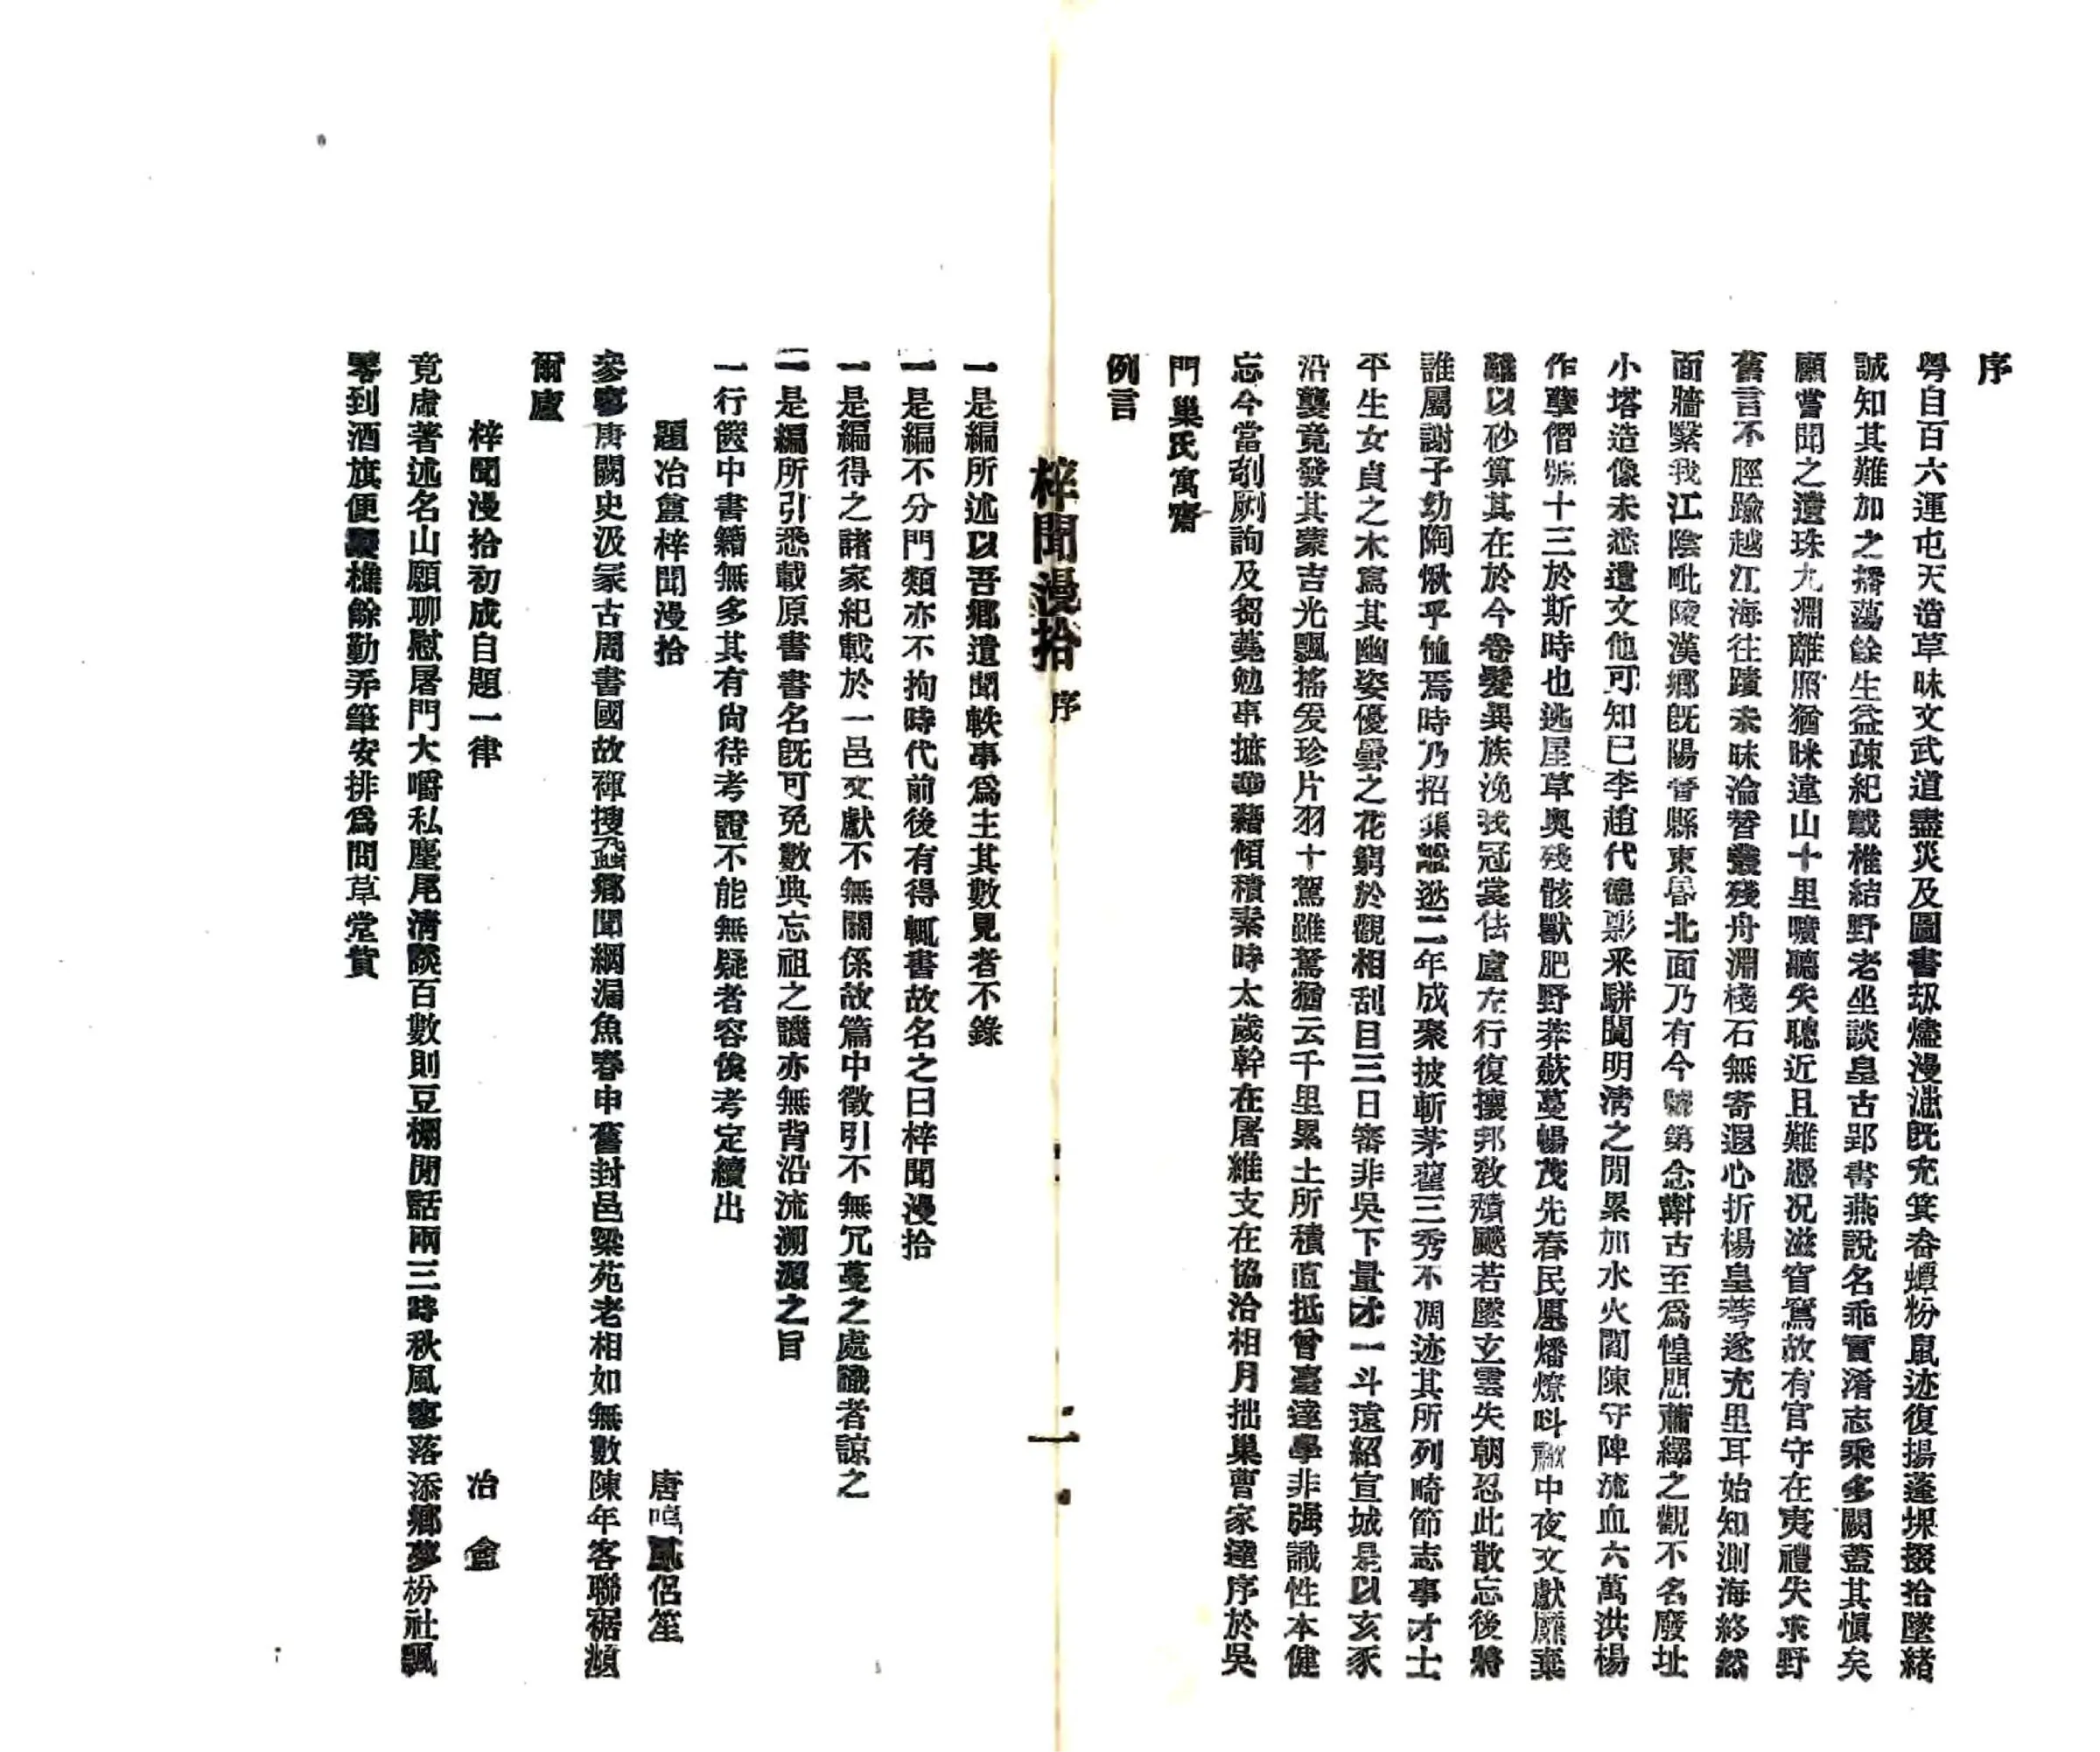 序
粵自百六運屯天造草昧文武道盡災及圖書刼燼漫漶旣充箕畚蟫粉鼠迹復揚蓬堁掇拾墜緒
誠知其難加之播蕩餘生益疎紀載椎結野老坐談皇古郢書燕說名乖實淆志乘多闕蓋其愼矣
顧嘗聞之遺珠九淵離照猶眯違山十里曠聽失聰近且難憑况滋窅鶩故有官守在夷禮失求野
舊言不脛踰越江海往蹟未昧淪替叢殘舟淵棧石無寄遐心折楊皇荂遂充里耳始知測海終然
面牆繄我江陰毗陵漢鄉旣陽晉縣東晷北面乃有今號第念斠古至爲惶悶蕭繹之觀不名廢址
小塔造像未悉遺文他可知已李趙代德彩釆駢闐明淸之閒累加水火閻陳守陴流血六萬洪楊
作孽僭號十三於斯時也逃屋草奥殘骸獸肥野莽蔽蔓暢茂先春民廛燔燎呌歗中夜文獻靡棄
雖以砂算其在於今卷髮異族浼我冠裳佉盧左行復攘邦敎穨飈若墜玄雲失朝忍此散忘後將
誰屬謝子幼陶愀乎恤焉時乃招集訟逖二年成聚披斬茅藋三秀不凋迹其所列畸節志事才士
平生女貞之木寫其幽姿優曇之花窮於觀相刮目三日審非吳下量才一斗遠紹宣城是以亥豕
沿襲竟發其蒙吉光飄搖爰珍片羽十駕雖駑猶云千里累土所積直抵曾臺達學非强識性本健
忘今當剞劂詢及芻蕘勉事摭華藉傾積素時太歲幹在屠維支在協洽相月拙巢曹家達序於吳
門巢氏寓齋
例言
梓聞漫拾 序 二
一是編所述以吾鄉遺聞軼事爲主其數見者不錄
一是編不分門類亦不拘時代前後有得輒書故名之曰梓聞漫拾
一是編得之諸家紀載於一邑文獻不無關係故篇中徵引不無冗蔓之處識者諒之
一是編所引悉載原書書名旣可免數典忘祖之譏亦無背沿流溯源之旨
一行篋中書籍無多其有尙待考證不能無疑者容俟考定續出
題冶盦梓聞漫拾 唐鳴鳳侶笙
參寥唐闕史汲冢古周書國故裨搜蝨鄉聞網漏魚春申舊封邑梁苑老相如無數陳年客聯裾瀕
爾廬
梓聞漫拾初成自題一律 冶盦
竟虛著述名山願聊慰屠門大嚼私麈尾淸談百數則豆棚閒話兩三時秋風寥落添鄉夢枌社飄
零到酒旗便擬樵餘勤弄筆安排爲問草堂貲